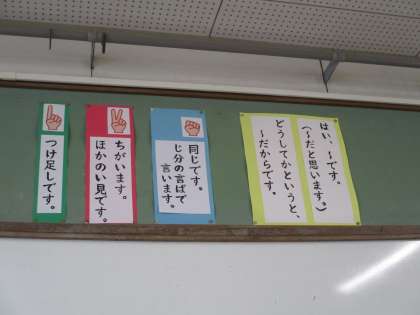 はい、～です。
(～だと思います。)
どうしてかというと、
～だからです。
同じです。
じ分の言ばで
言います。
ちがいます。
ほかのい見です。
つけ足しです。